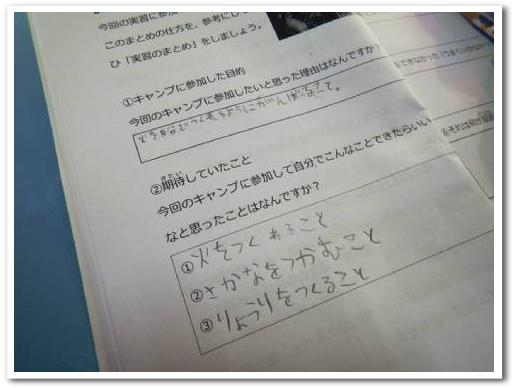 今回の実習に参加
このまとめの仕方を、参考にし
ひ「実習のまとめ」をしましょう。
①キャンプに参加した目的
今回のキャンプに参加したいと思った理由はなんですか?
火を自分でつくれるようにがんばること。
②期待していたこと
きたい
今回のキャンプに参加して自分でこんなことできたらいい
なと思ったことはなんですか?
① 火をつくれること
② さかなをつかむこと
③ りょうりをつくること
できなかった
それは何が